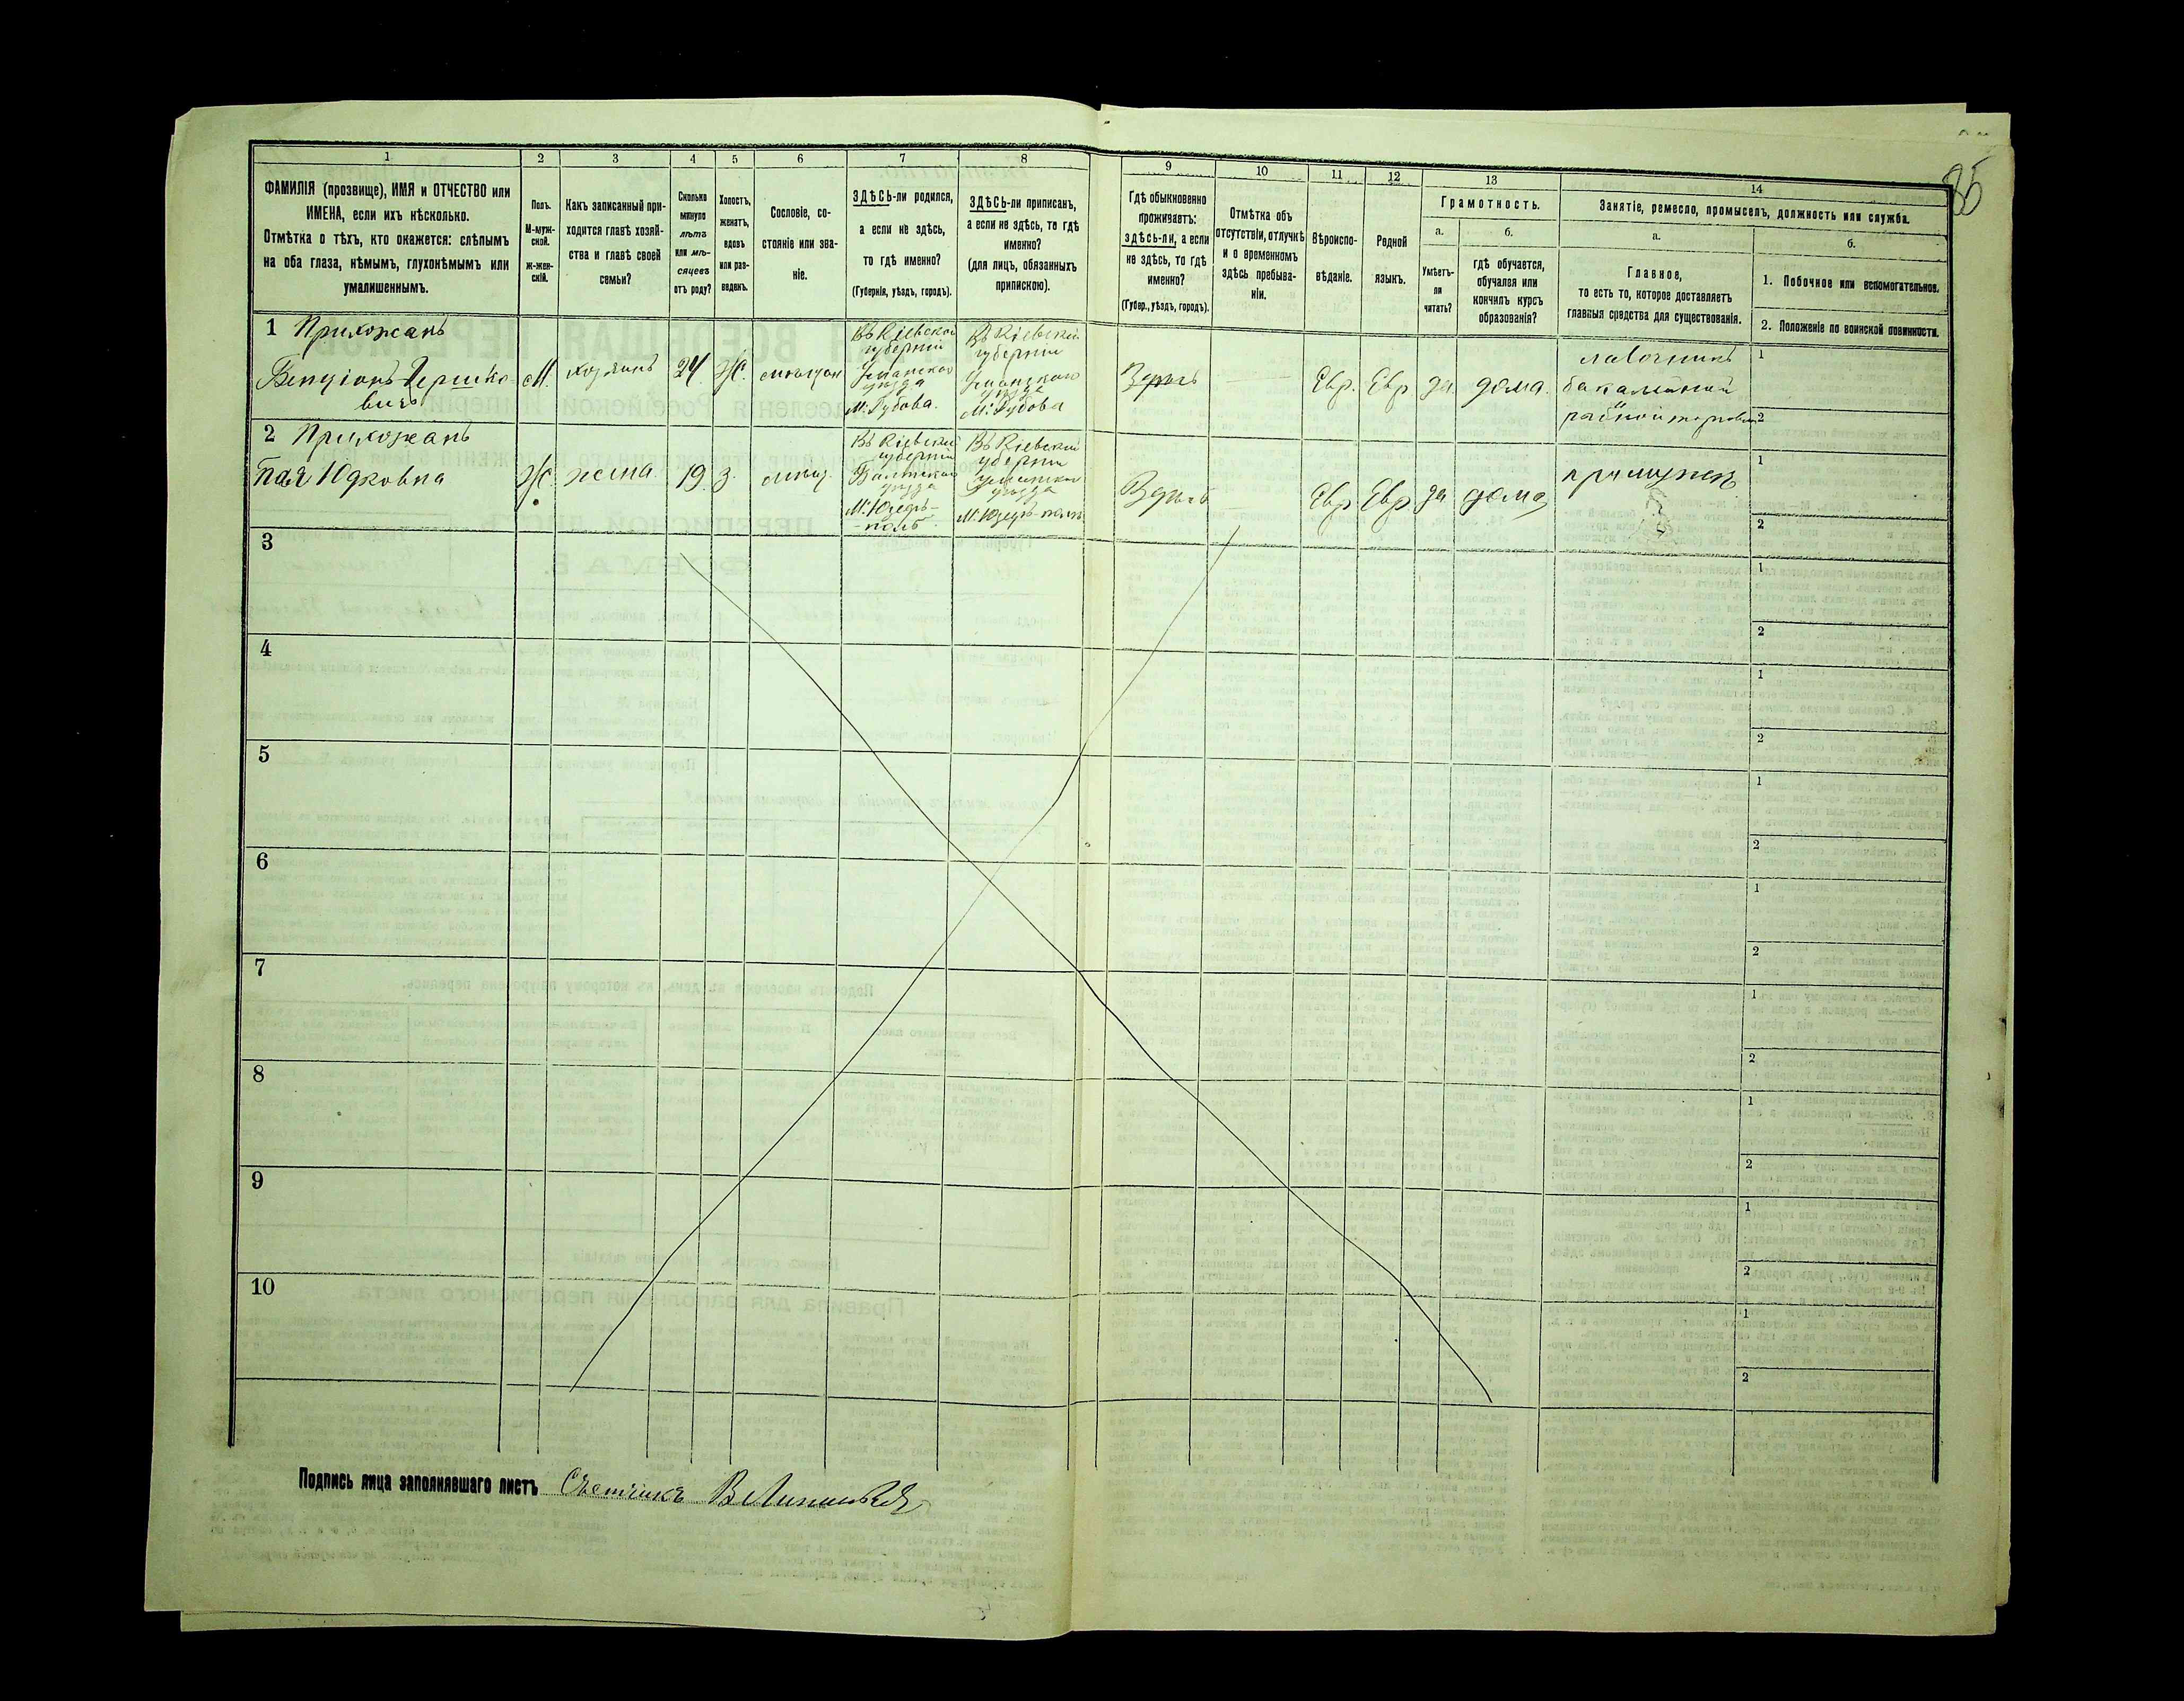 1 2 3 4 5 6 7 8 9 10 11 12 13 14
85
ФАМИЛІЯ (прозвище), ИМЯ и ОТЧЕСТВО или
ИМЕНА, если ихъ нѣсколько.
Отмѣтка о тѣхъ, кто окажется: слѣпымъ
на оба глаза, нѣмымъ, глухонѣмымъ или
умалишеннымъ.
Полъ.
М-муж-
ской.
Ж-жен-
скій.
Какъ записанный при-
ходится главѣ хозяй-
ства и главѣ своей
семьи?
Сколько
минуло
лѣтъ
или мѣ-
сяцевъ
отъ роду?
Холостъ,
женатъ,
вдовъ
или раз-
веденъ.
Сословіе, со-
стояніе или зва-
ніе.
ЗДѢСЬ-ли родился,
а если не здѣсь,
то гдѣ именно?
(Губернія, уѣздъ, городъ).
ЗДѢСЬ-ли приписанъ,
а если не здѣсь, то гдѣ
именно?
(для лицъ, обязанныхъ
припискою).
Гдѣ обыкновенно
проживаетъ:
здѣсь-ли, а если
не здѣсь, то гдѣ
именно?
(Губер., уѣздъ, городъ).
Отмѣтка объ
отсутствіи, отлучкѣ
и о временномъ
здѣсь пребыва-
ніи.
Вѣроиспо-
вѣданіе.
Родной
языкъ.
Грамотность.
а.
Умѣетъ-
ли
читать?
б.
гдѣ обучается,
обучался или
кончилъ курсъ
образованія?
Занятіе, ремесло, промыселъ, должность или служба.
а.
Главное,
то есть то, которое доставляетъ
главныя средства для существованія.
б.
1. Побочное или вспомогательное.
2. Положеніе по воинской повинности.
1 Прихожанъ
Бенціонъ Гершко-
вичъ
М.
хозяинъ
24
Ж.
мѣщан
Въ Кіевской
губерніи
Уманского
уѣзда
М. Рубова.
Въ Кіевской
губерніи
Уманского
уѣзда
М. Рубова
Здѣсь
Евр.
Евр
да
дома.
лавочникъ
бакалейной
1
2
2 Прихожанъ
Юдковна
Ж.
жена.
19
З.
мѣщ.
Въ Кіевской
губерніи
уѣзда
М. Юзефъ-
-поль.
Въ Кіевской
губерніи
уѣзда
М. Юзефъ-поль
Здѣсь
Евр
Евр
да
дома
при мужѣ
1
2
3
1
2
4
1
2
5
1
2
6
1
2
7
1
2
8
1
2
9
1
2
10
1
2
Подпись лица заполнявшаго листъ Счетчикъ